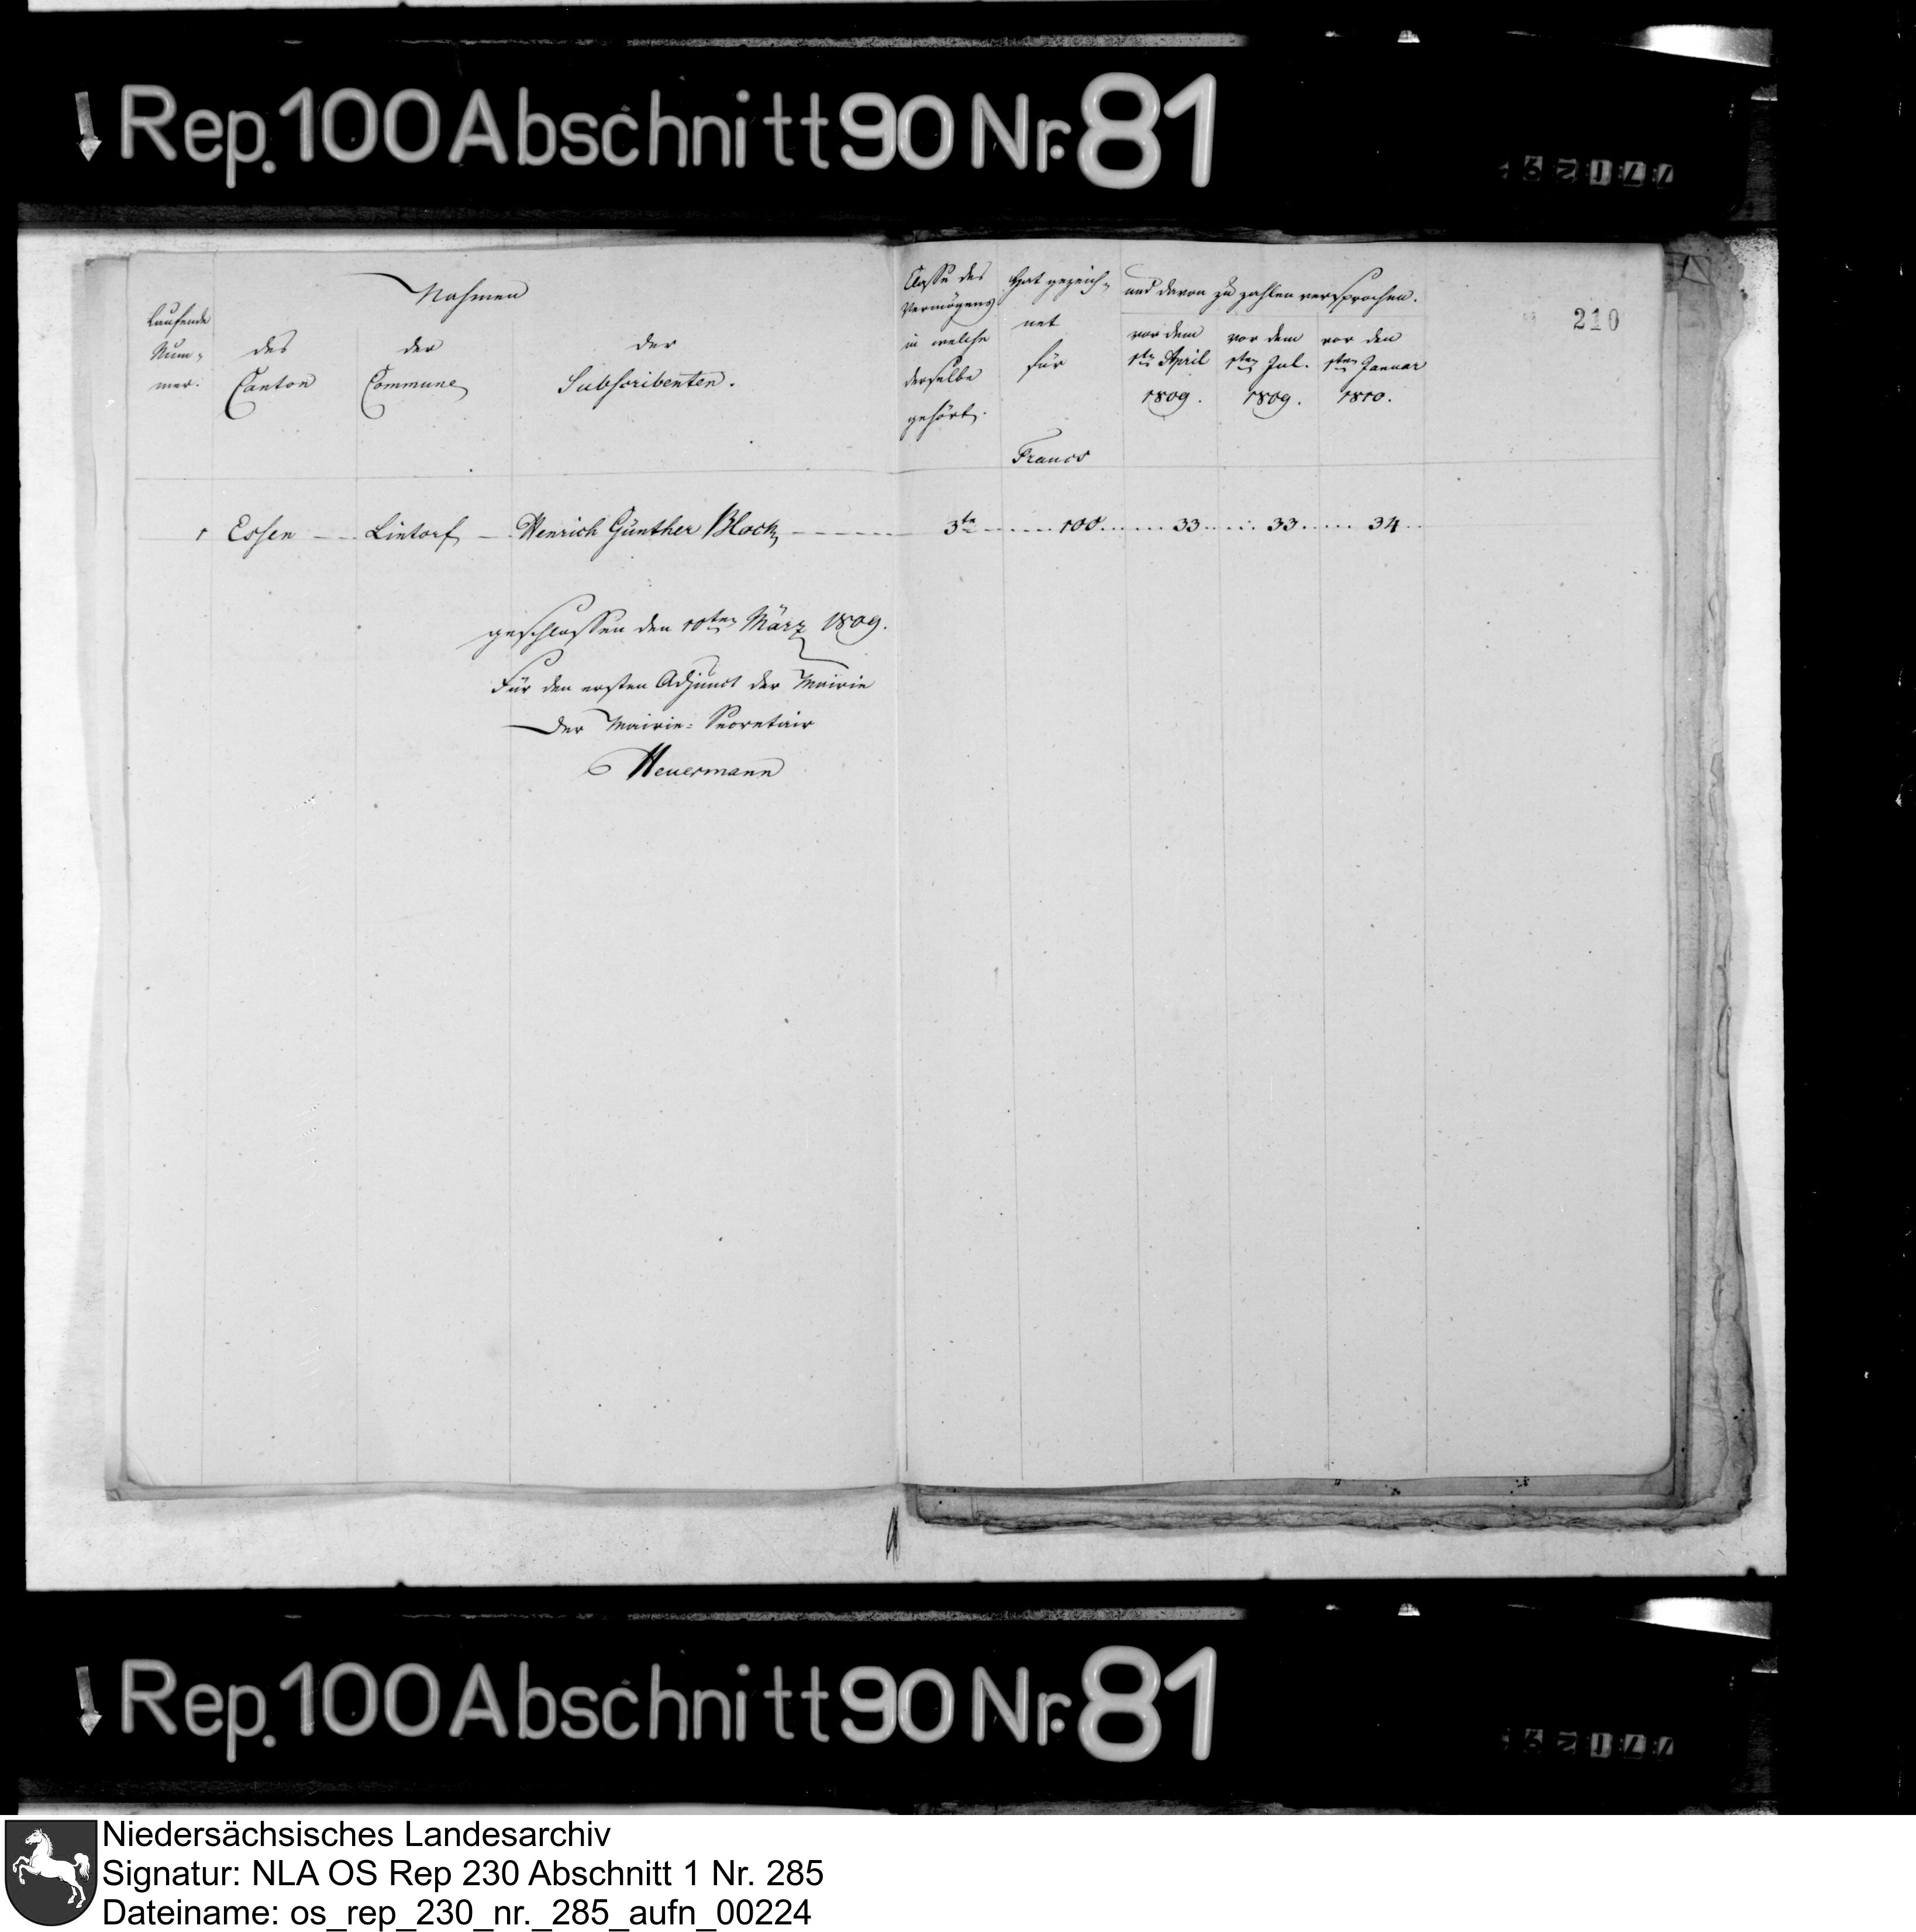 Rep. 100 Abschnitt 90 Nr. 81
210
Nahmen
Laufende
Num-
mer.
des
Canton
der
Commune
der
Subscribenten.
Classe des
Vermögens
in welche
derselbe
gehört.
Hat gezeich-
net
für
Francs
und davon zu zahlen versprochen.
vor dem
1ten April
1809.
vor dem
1ten Jul.
1809.
vor den
1ten Januar
1810.
1 Essen Lintorf Henrich Günther Block 3te 100 33 33 34
geschlossen den 10ten März 1809.
Für den ersten Adjunct der Mairie
Der Mairie-Secretair
Heuermann
Rep. 100 Abschnitt 90 Nr. 81
Niedersächsisches Landesarchiv
Signatur: NLA OS Rep 230 Abschnitt 1 Nr. 285
Dateiname: os_rep_230_nr._285_aufn_00224